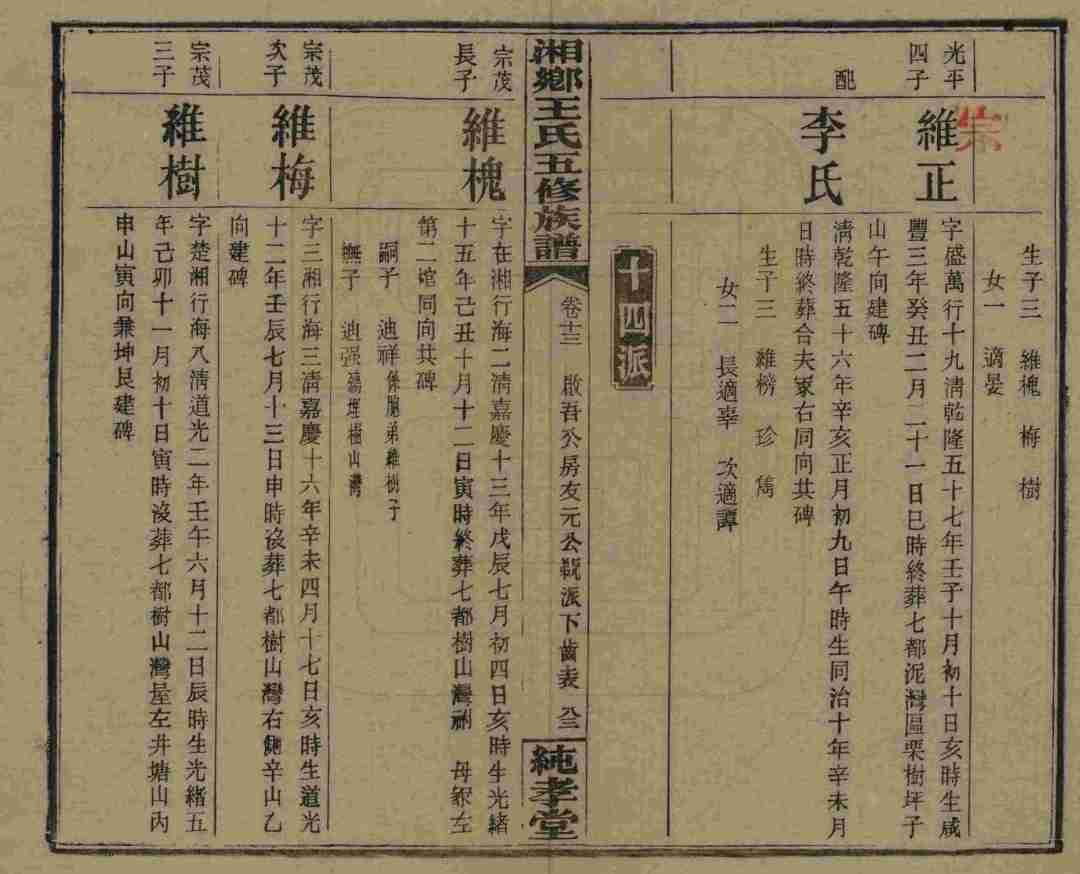 生子三　維槐　梅　樹
女一　適晏
光平
四子
宗
維正
字盛萬行十九清乾隆五十七年壬子十月初十日亥時生咸
豐三年癸丑二月二十一日巳時終葬七都泥灣區栗樹坪子
山午向建碑
配
李氏
清乾隆五十六年辛亥正月初九日午時生同治十年辛未月
日時終葬合夫冢右同向其碑
生子三　維榜　珍　雋
女二　長適辜　次適譚
十四派
湘鄉王氏五修族譜
卷十三　啟吾公房友元公　派下齒表　八三
純孝堂
宗茂
長子
維槐
字在湘行海二清嘉慶十三年戊辰七月初四日亥時生光緒
十五年己丑十月十二日寅時終葬七都樹山灣　母　左
第二棺同向共碑
嗣子　迪祥係胞弟維樹子
撫子　迪强　樹山灣
宗茂
次子
維梅
字三湘行海三清嘉慶十六年辛未四月十七日亥時生道光
十二年壬辰七月十三日申時歿葬七都樹山灣右側辛山乙
向建碑
宗茂
三子
維樹
字楚湘行海八清道光二年壬午六月十二日辰時生光緒五
年己卯十一月初十日寅時歿葬七都樹山灣屋左井塘山內
申山寅向兼坤艮建碑